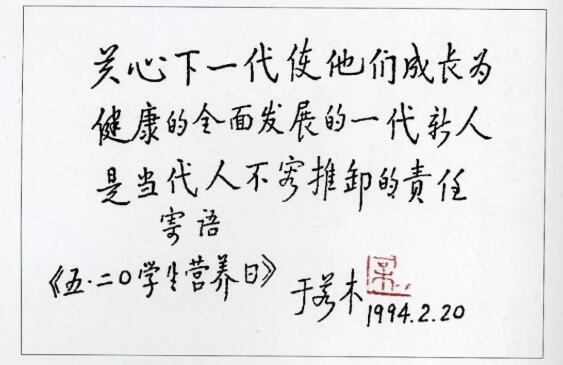 关心下一代使他们成长为
健康的全面发展的一代新人
是当代人不容推卸的责任
寄语
《五·二〇学生营养日》
于若木
1994.2.20